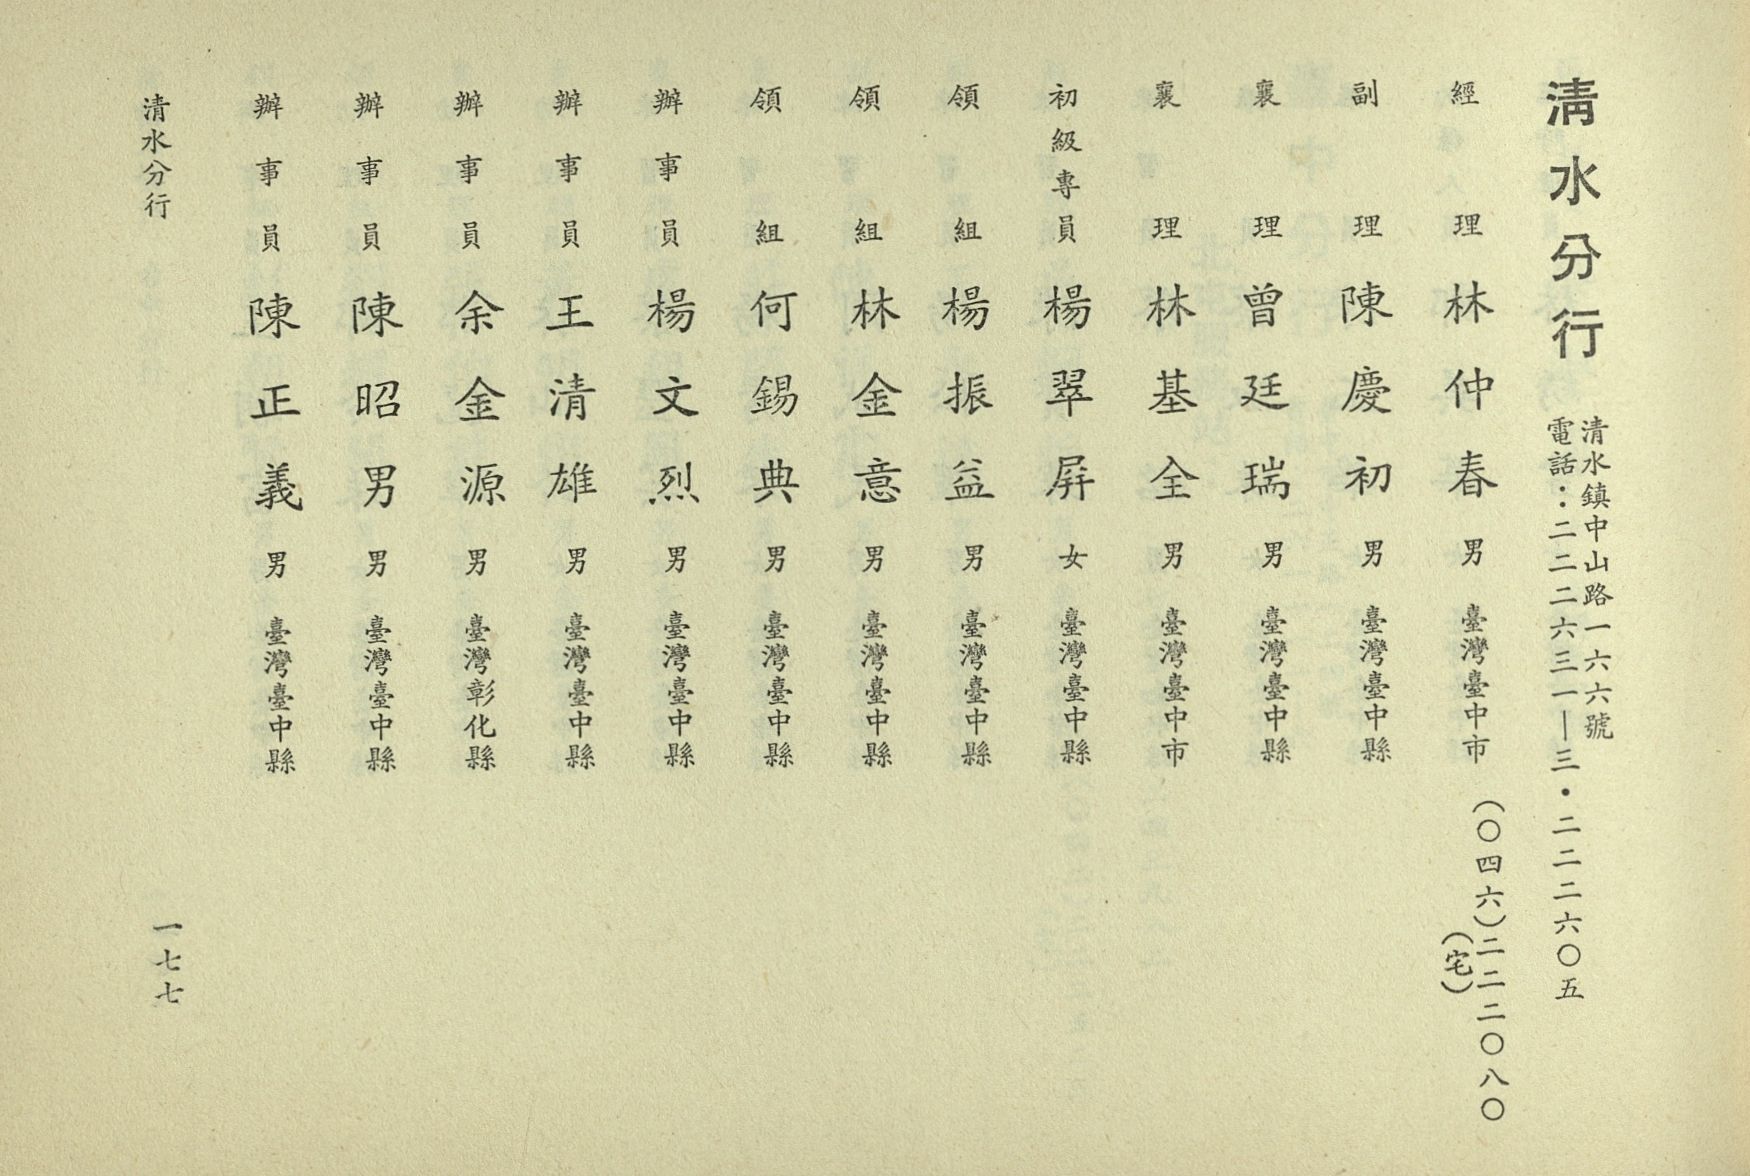 清水分行
清水鎮中山路一六六號
電話：二二二六三一—三・二二二六〇五
經理 林仲春 男 臺灣臺中市 （〇四六）二二二〇八〇
（宅）
副理 陳慶初 男 臺灣臺中縣
襄理 曾廷瑞 男 臺灣臺中縣
襄理 林基全 男 臺灣臺中市
初級專員 楊翠屛 女 臺灣臺中縣
領組 楊振益 男 臺灣臺中縣
領組 林金意 男 臺灣臺中縣
領組 何錫典 男 臺灣臺中縣
辦事員 楊文烈 男 臺灣臺中縣
辦事員 王清雄 男 臺灣臺中縣
辦事員 余金源 男 臺灣彰化縣
辦事員 陳昭男 男 臺灣臺中縣
辦事員 陳正義 男 臺灣臺中縣
清水分行
一七七